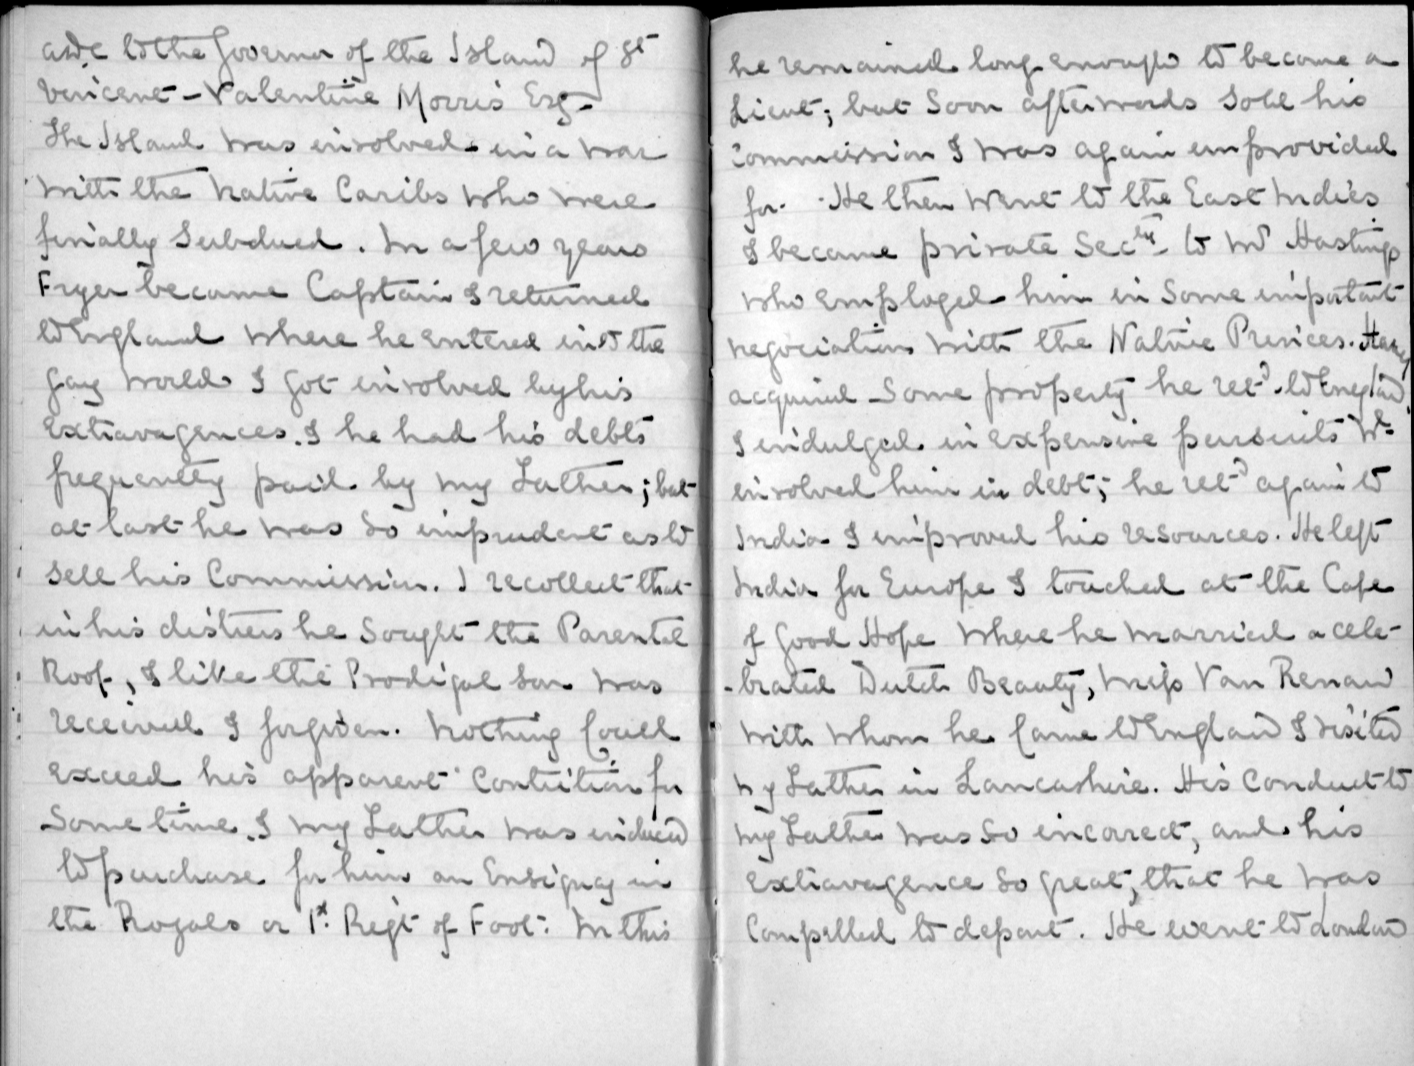 adc to the Governor of the Island of St
Vincent - Valentine Morris Esq-
The Island was involved in a war
with the Native Caribs who were
finally subdued. In a few years
Fryer became Captain & returned
to England where he entered into the
gay world & got involved by his
extravagences. & he had his debts
frequently paid by my Father; but
at last he was so imprudent as to
sell his Commission. I recollect that
in his distress he sought the Parental
Roof, & like the Prodigal Son was
received & forgiven. Nothing could
exceed his apparent Contrition for
Some time. & my Father was induced
to purchase for him an Ensigncy in
the Royals or 1st. Regt of Foot: In this
he remained long enough to become a
Lieut; but Soon afterwards sold his
Commission & was again unprovided
for. He then went to the East Indies
& became private Secty to Mr Hastings
who employed him in Some important
negociations with the Native Princes. Having
acquired Some property he retd. to England
& indulged in expensive pursuits wh
involved him in debt; he retd again to
India & improved his resources. He left
India for Europe & touched at the Cape
of Good Hope where he married a cele-
-brated Dutch Beauty, Miss Van Renan
with whom he Came to England & visited
my Father in Lancashire. His Conduct to
my Father was so incorrect, and his
extravagence so great, that he was
Compelled to depart. He went to London